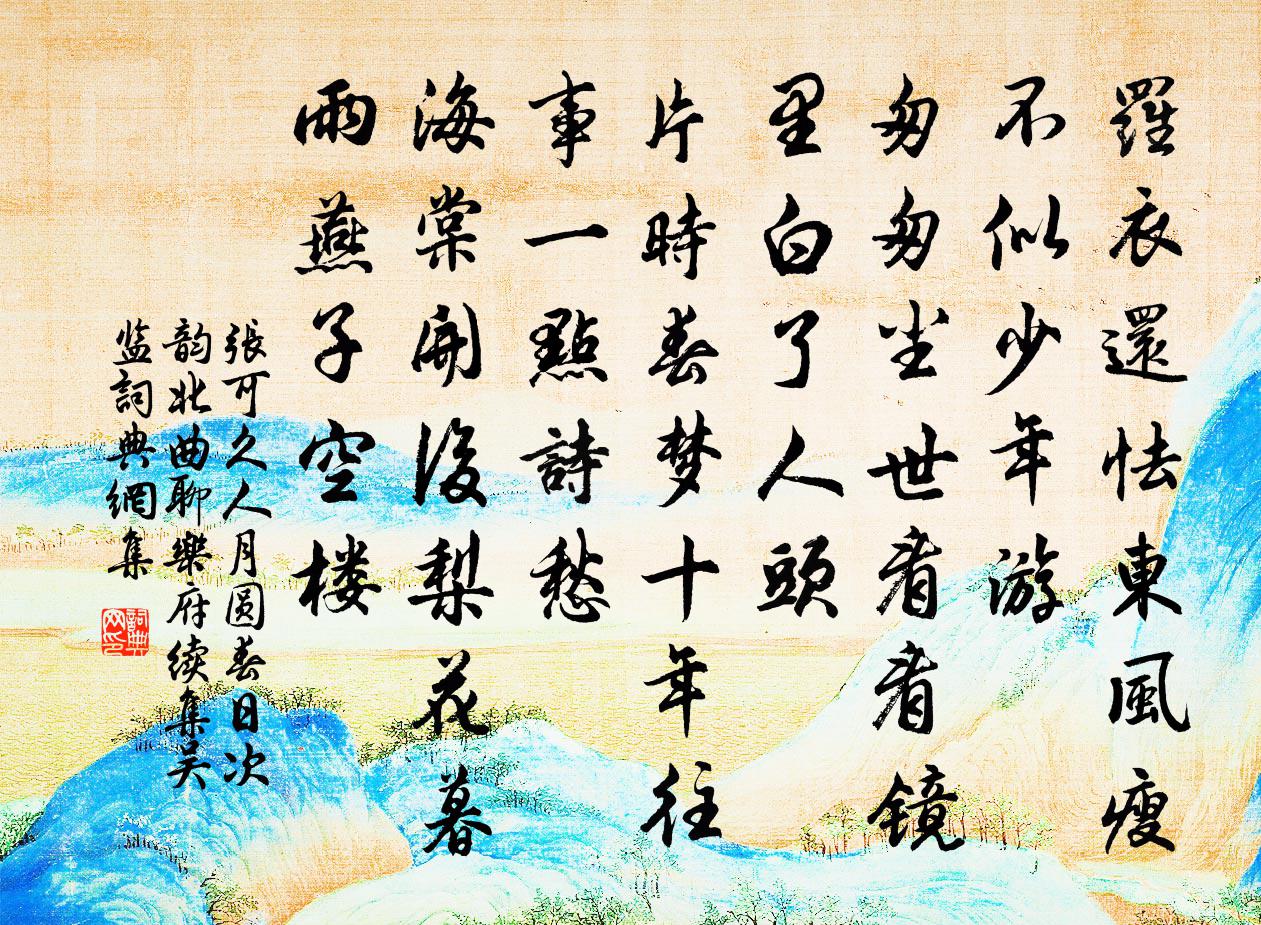 羅衣還怯東風瘦
不似少年游
匆匆尘世看看镜
里白了人頭
片時春梦十年往
事一點詩愁
海棠開後梨花暮
雨燕子空楼
張可久人月圆春日次
韵北曲聊樂府續集吴
监詞典網集
詞典网印